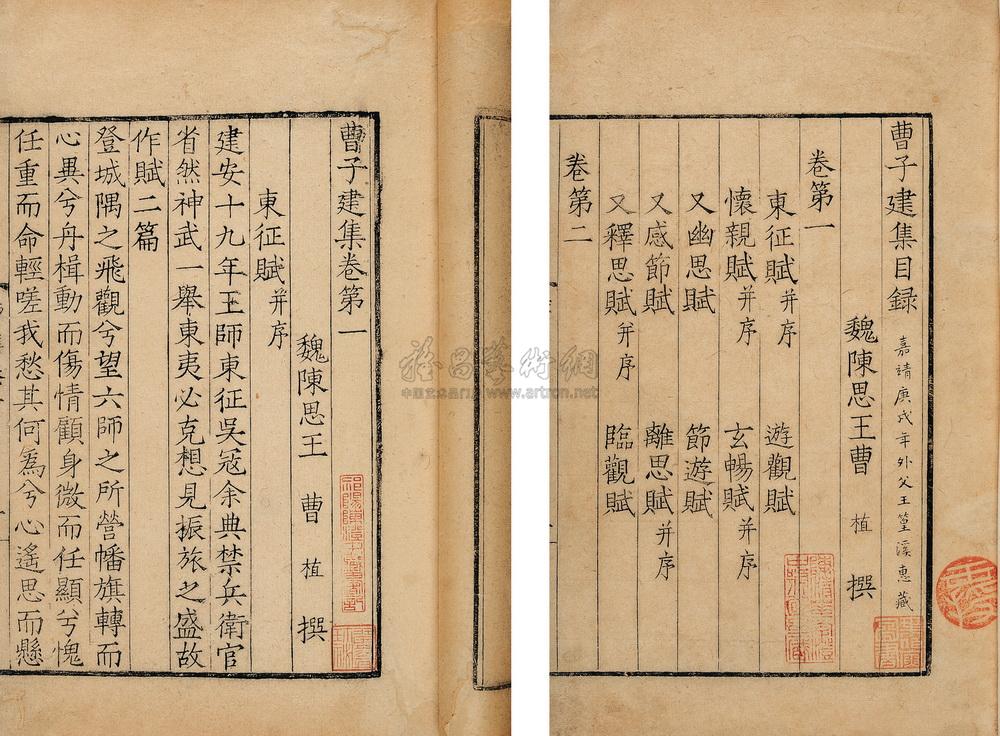 曹子建集目録 嘉靖庚戌年外父王篁溪惠藏
魏陳思王曹植撰
卷第一
東征賦并序 遊觀賦
懷親賦并序 玄暢賦并序
又幽思賦 節遊賦
又感節賦 離思賦并序
又釋思賦并序 臨觀賦
卷第二
曹子建集卷第一
魏陳思王曹植撰
東征賦并序
建安十九年王師東征吳冦余典禁兵衛官
省然神武一舉東夷必克想見振旅之盛故
作賦二篇
登城隅之飛觀兮望六師之所營幡旗轉而
心異兮舟楫動而傷情顧身微而任顯兮愧
任重而命輕嗟我愁其何爲兮心遙思而懸
www.artron.net